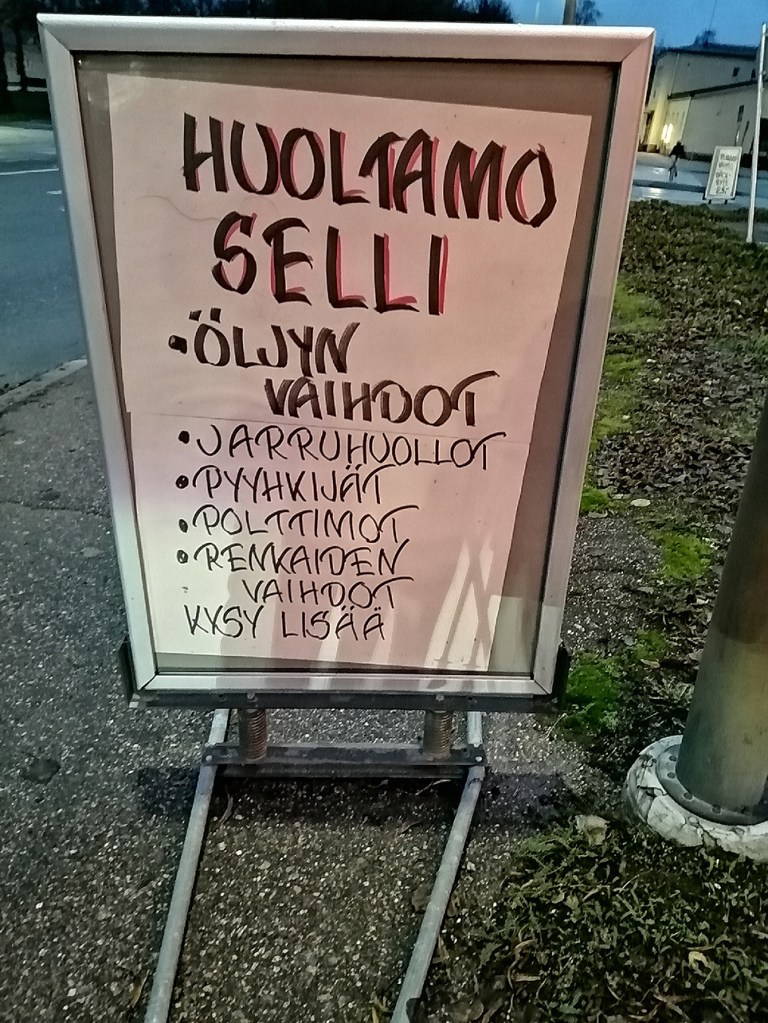 HUOLTAMO
SELLI
• ÖLJYN
VAIHDOT
• JARRUHUOLLOT
• PYYHKIJÄT
• POLTTIMOT
• RENKAIDEN
VAIHDOT
KYSY LISÄÄ